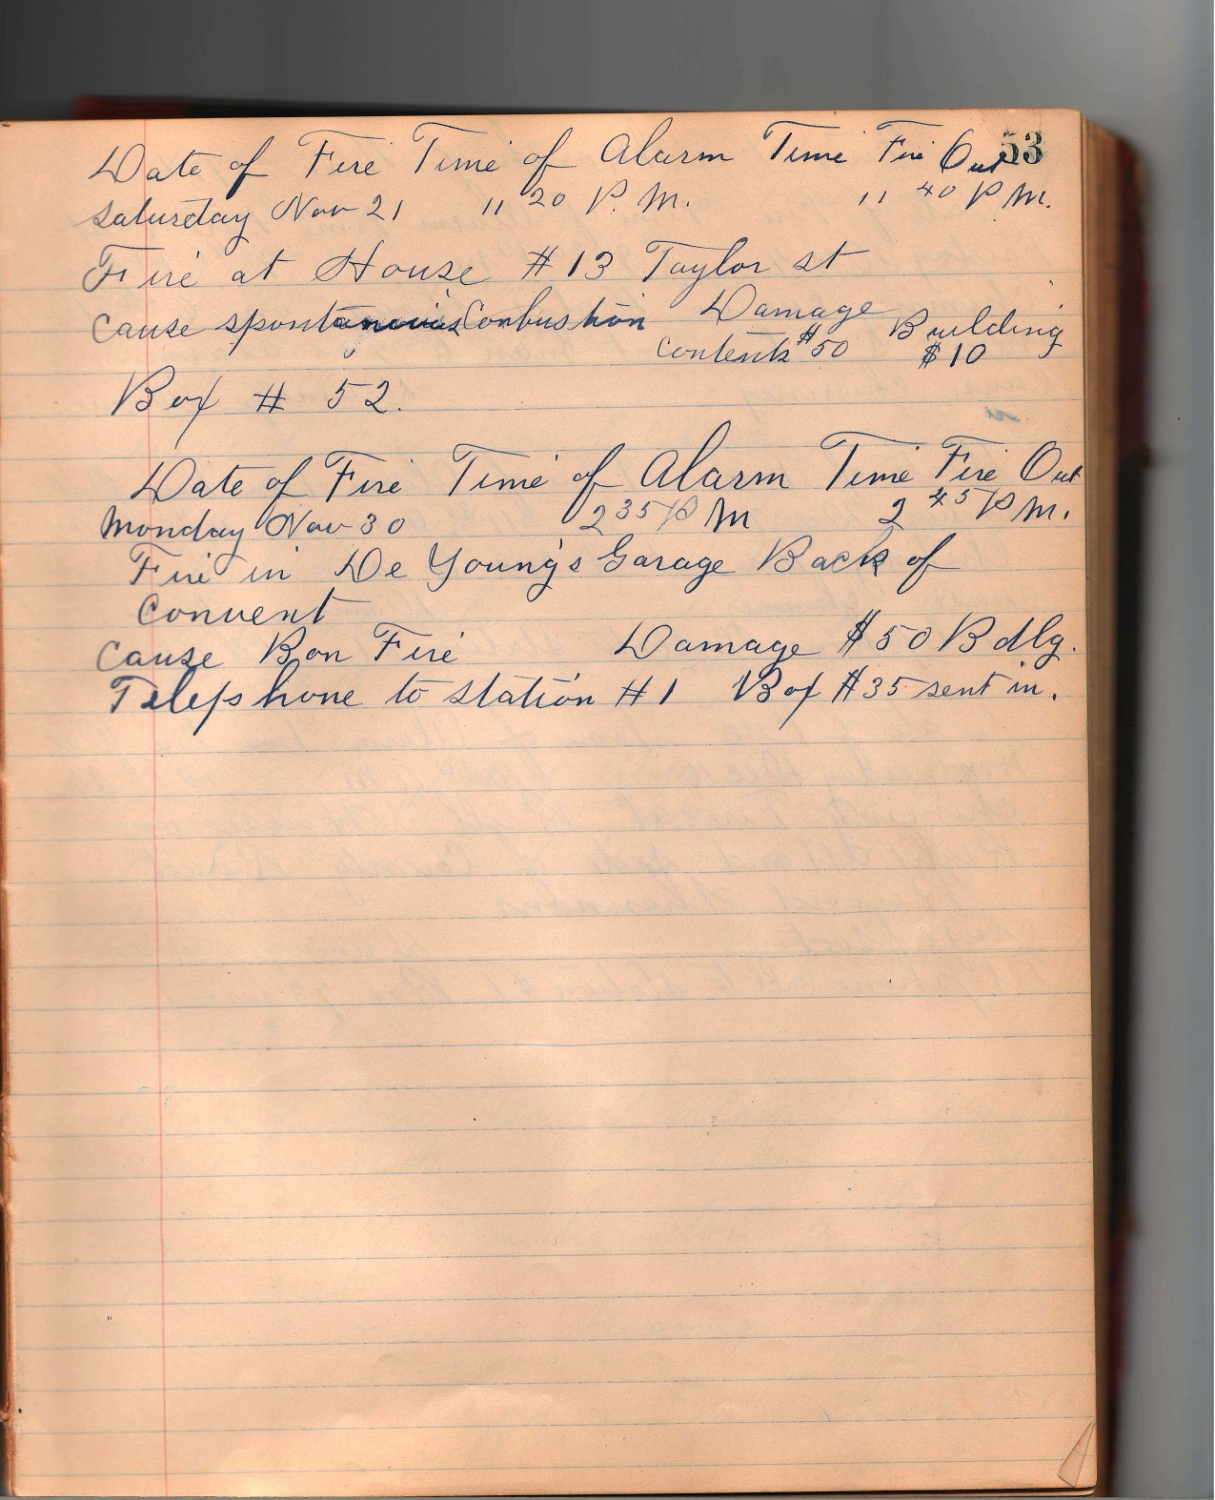 53
Date of Fire Time of Alarm Time Fire Out
Saturday Nov 21 11 20 P.M. 11 40 P M.
Fire at House #13 Taylor st
Cause spontanouis Conbustion Damage Building
Contents $50 $10
Box # 52.
Date of Fire Time of Alarm Time Fire Out
Monday Nov 30 2 35 P M 2 45 P M.
Fire in De Young's Garage Back of
Convent
Cause Bon Fire Damage $50 Bdlg.
Telephone to station #1 Box #35 sent in.